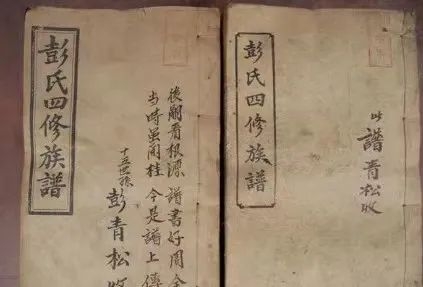 彭氏四修族譜
後嗣看根源譜書好周全
当時虽闹桂今是譜上傳
十五世孫
彭青松收
彭氏四修族譜
此譜青松收